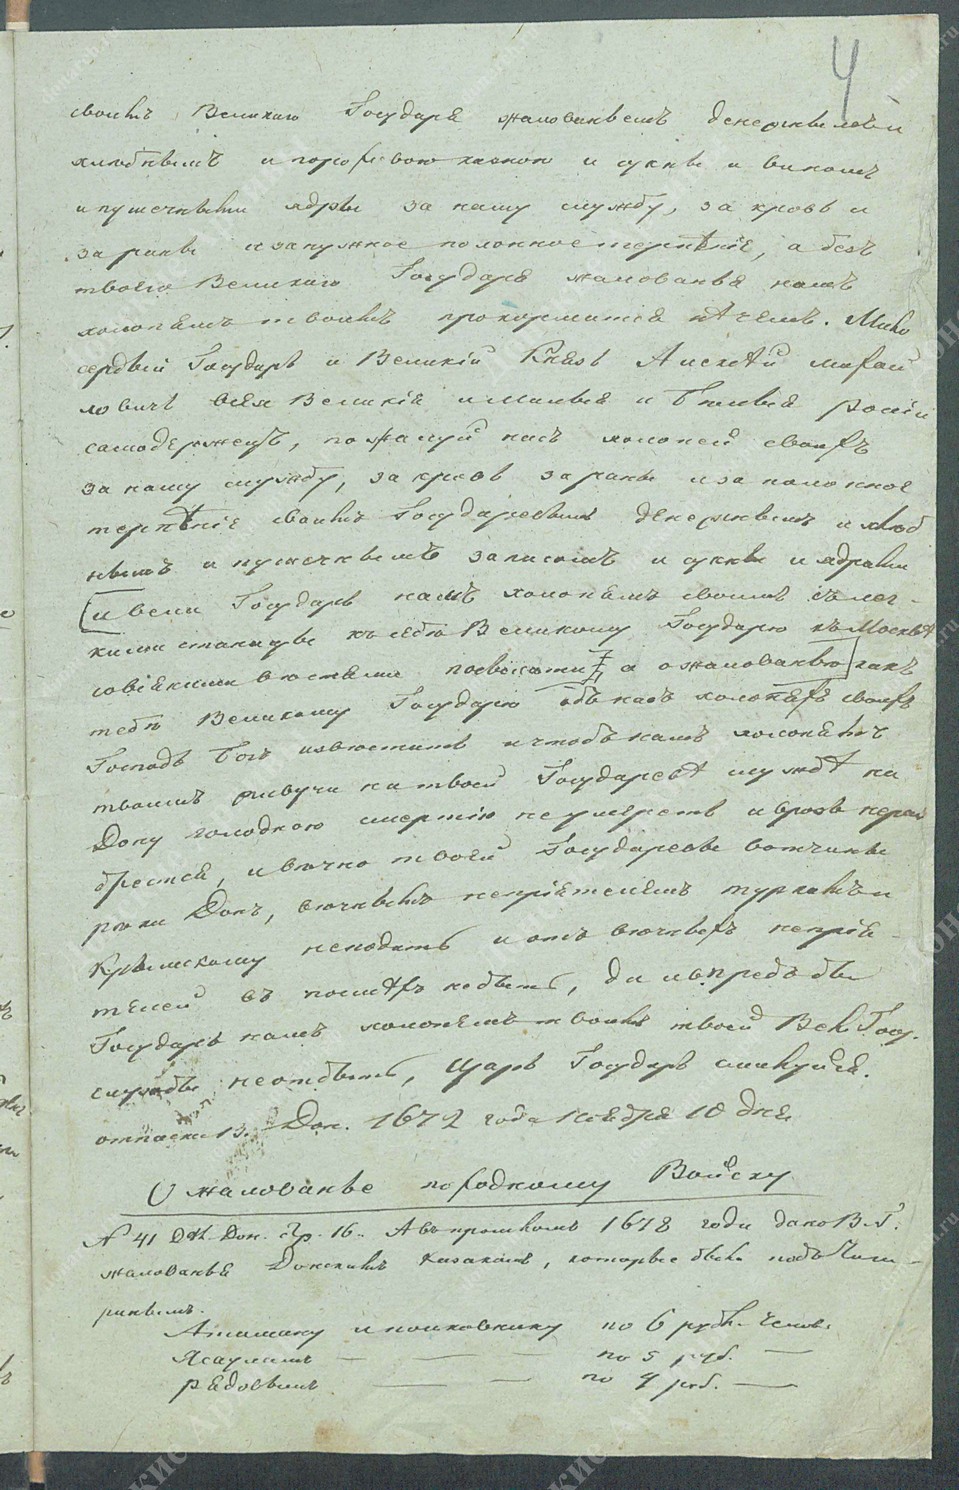 4
своимъ Великаго Государя жалованьемъ денежнымъ и
хлѣбнымъ и пороховою казною и сукны и виномъ
и пушечными ядры за нашу службу, за кровь и
за раны и за нужное полонное терпѣніе, а безъ
твоего Великаго Государя жалованья намъ
холопямъ твоимъ прокормится нѣчемъ. Мило
сердый Государь и Великій Князь Алексѣй Михай
ловичь всея Великія и Малыя и Бѣлыя Росіи
самодержецъ, пожалуй насъ холопей своихъ
за нашу службу, за кровь за раны и за полонное
терпѣніе своимъ Государевымъ денежнымъ и хлѣб
нымъ и пушечнымъ запасомъ и сукны и ядрами
и вели Государь намъ холопямъ своимъ съ лег-
кими станицы къ себѣ Великому Государю къ Москвѣ
со всякими вѣстями посылати, а о жалованью какъ
тебѣ Великому Государю объ насъ холопяхъ своихъ
Господь Богъ извѣститъ и чтобъ намъ холопямъ
твоимъ живучи на твоей Государевѣ службѣ на
Дону голодною смертію не умереть и врозь не раз
брестся, и вѣчно твоей Государевы вотчины
рѣки Донъ, вѣчнымъ непріятелямъ туркамъ и
Крымскому неподать и отъ вѣчныхъ непрія-
телей въ посмѣхъ не быть, да и впредь бы
Государь намъ холопямъ твоимъ твоей Вел. Госу.
службы неотбыть, Царь Государь смилуйся.
отписка Дон. 1672 года Ноября 10 дня
О жалованье походному Войску
N 41 Дѣл. Дон. 16. А въ прошломъ 1678 годи дано В. Г.
жалованья Донскимъ казакамъ, которые были подъ Чиги-
ринымъ.
Атаману и полковнику по 6 рубл. человѣ.
Ясауламъ — — — по 5 руб. —
рядовымъ — — по 4 руб. —